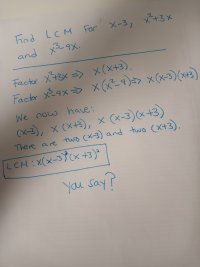 Find LCM for: x-3, x²+3x
and x³-9x.
Factor x²+3x => x(x+3).
Factor x³-9x => x(x²-9) => x(x-3)(x+3)
We now have:
(x-3), x(x+3), x(x-3)(x+3)
There are two (x-3) and two (x+3).
LCM: x(x-3)²(x+3)²
You say?